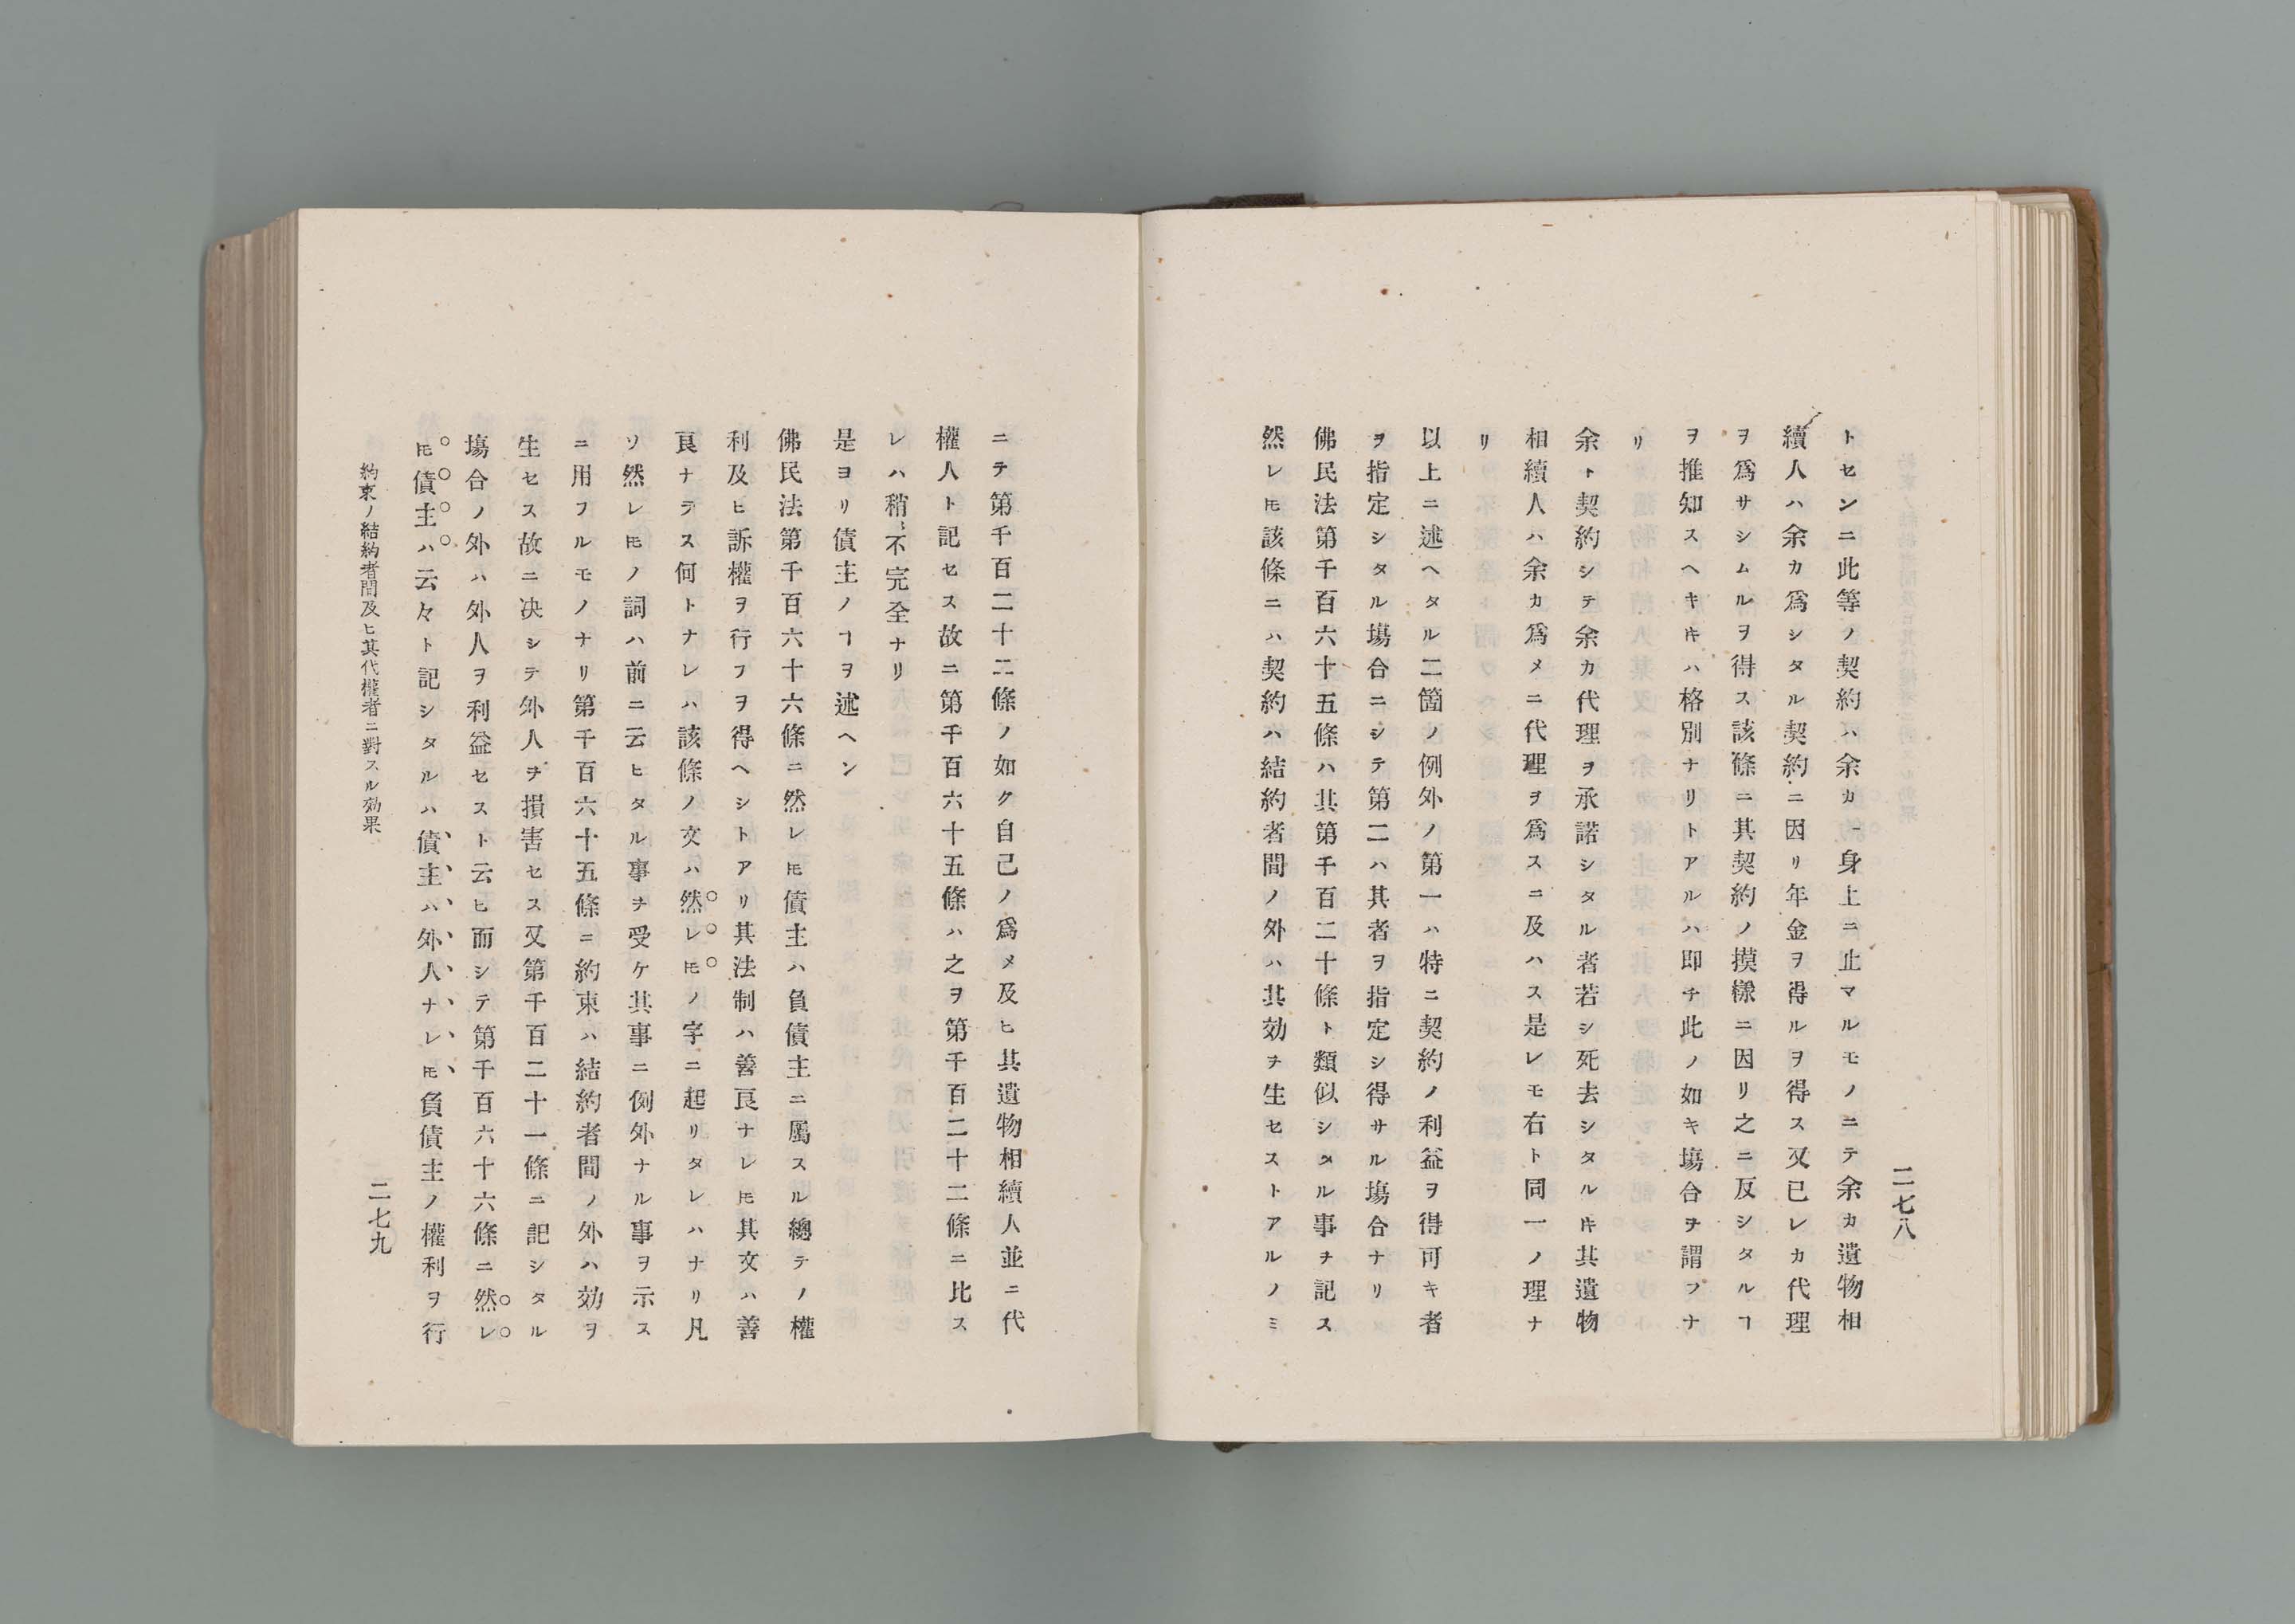 二七八
トセンニ此等ノ契約ハ余カ一身上ニ止マルモノニテ余カ遺物相
續人ハ余カ爲シタル契約ニ因リ年金ヲ得ルヲ得ス又已レカ代理
ヲ爲サシムルヲ得ス該條ニ其契約ノ摸樣ニ因リ之ニ反シタルヿ
ヲ推知スヘキ𪜈ハ格別ナリトアルハ即チ此ノ如キ塲合ヲ謂フナ
リ
余ト契約シテ余カ代理ヲ承諾シタル者若シ死去シタル𪜈其遺物
相續人ハ余カ爲メニ代理ヲ爲スニ及ハス是レモ右ト同一ノ理ナ
リ
以上ニ述ヘタル二箇ノ例外ノ第一ハ特ニ契約ノ利益ヲ得可キ者
ヲ指定シタル塲合ニシテ第二ハ其者ヲ指定シ得サル塲合ナリ
佛民法第千百六十五條ハ其第千百二十條ト類似シタル事ヲ記ス
然レ𪜈該條ニハ契約ハ結約者間ノ外ハ其効ヲ生セストアルノミ
ニテ第千百二十二條ノ如ク自己ノ爲メ及ヒ其遺物相續人並ニ代
權人ト記セス故ニ第千百六十五條ハ之ヲ第千百二十二條ニ比ス
レハ稍〻不完全ナリ
是ヨリ債主ノヿヲ述ヘン
佛民法第千百六十六條ニ然レ𪜈債主ハ負債主ニ屬スル總テノ權
利及ヒ訴權ヲ行フヲ得ヘシトアリ其法制ハ善良ナレ𪜈其文ハ善
良ナラス何トナレハ該條ノ文ハ然レ𪜈ノ字ニ起リタレハナリ凡
ソ然レ𪜈ノ詞ハ前ニ云ヒタル事ヲ受ケ其事ニ例外ナル事ヲ示ス
ニ用フルモノナリ第千百六十五條ニ約束ハ結約者間ノ外ハ効ヲ
生セス故ニ决シテ外人ヲ損害セス又第千百二十一條ニ記シタル
塲合ノ外ハ外人ヲ利益セスト云ヒ而シテ第千百六十六條ニ然レ
𪜈債主ハ云々ト記シタルハ債主ハ外人ナレ𪜈負債主ノ權利ヲ行
約束ノ結約者間及ヒ其代權者ニ對スル効果
二七九